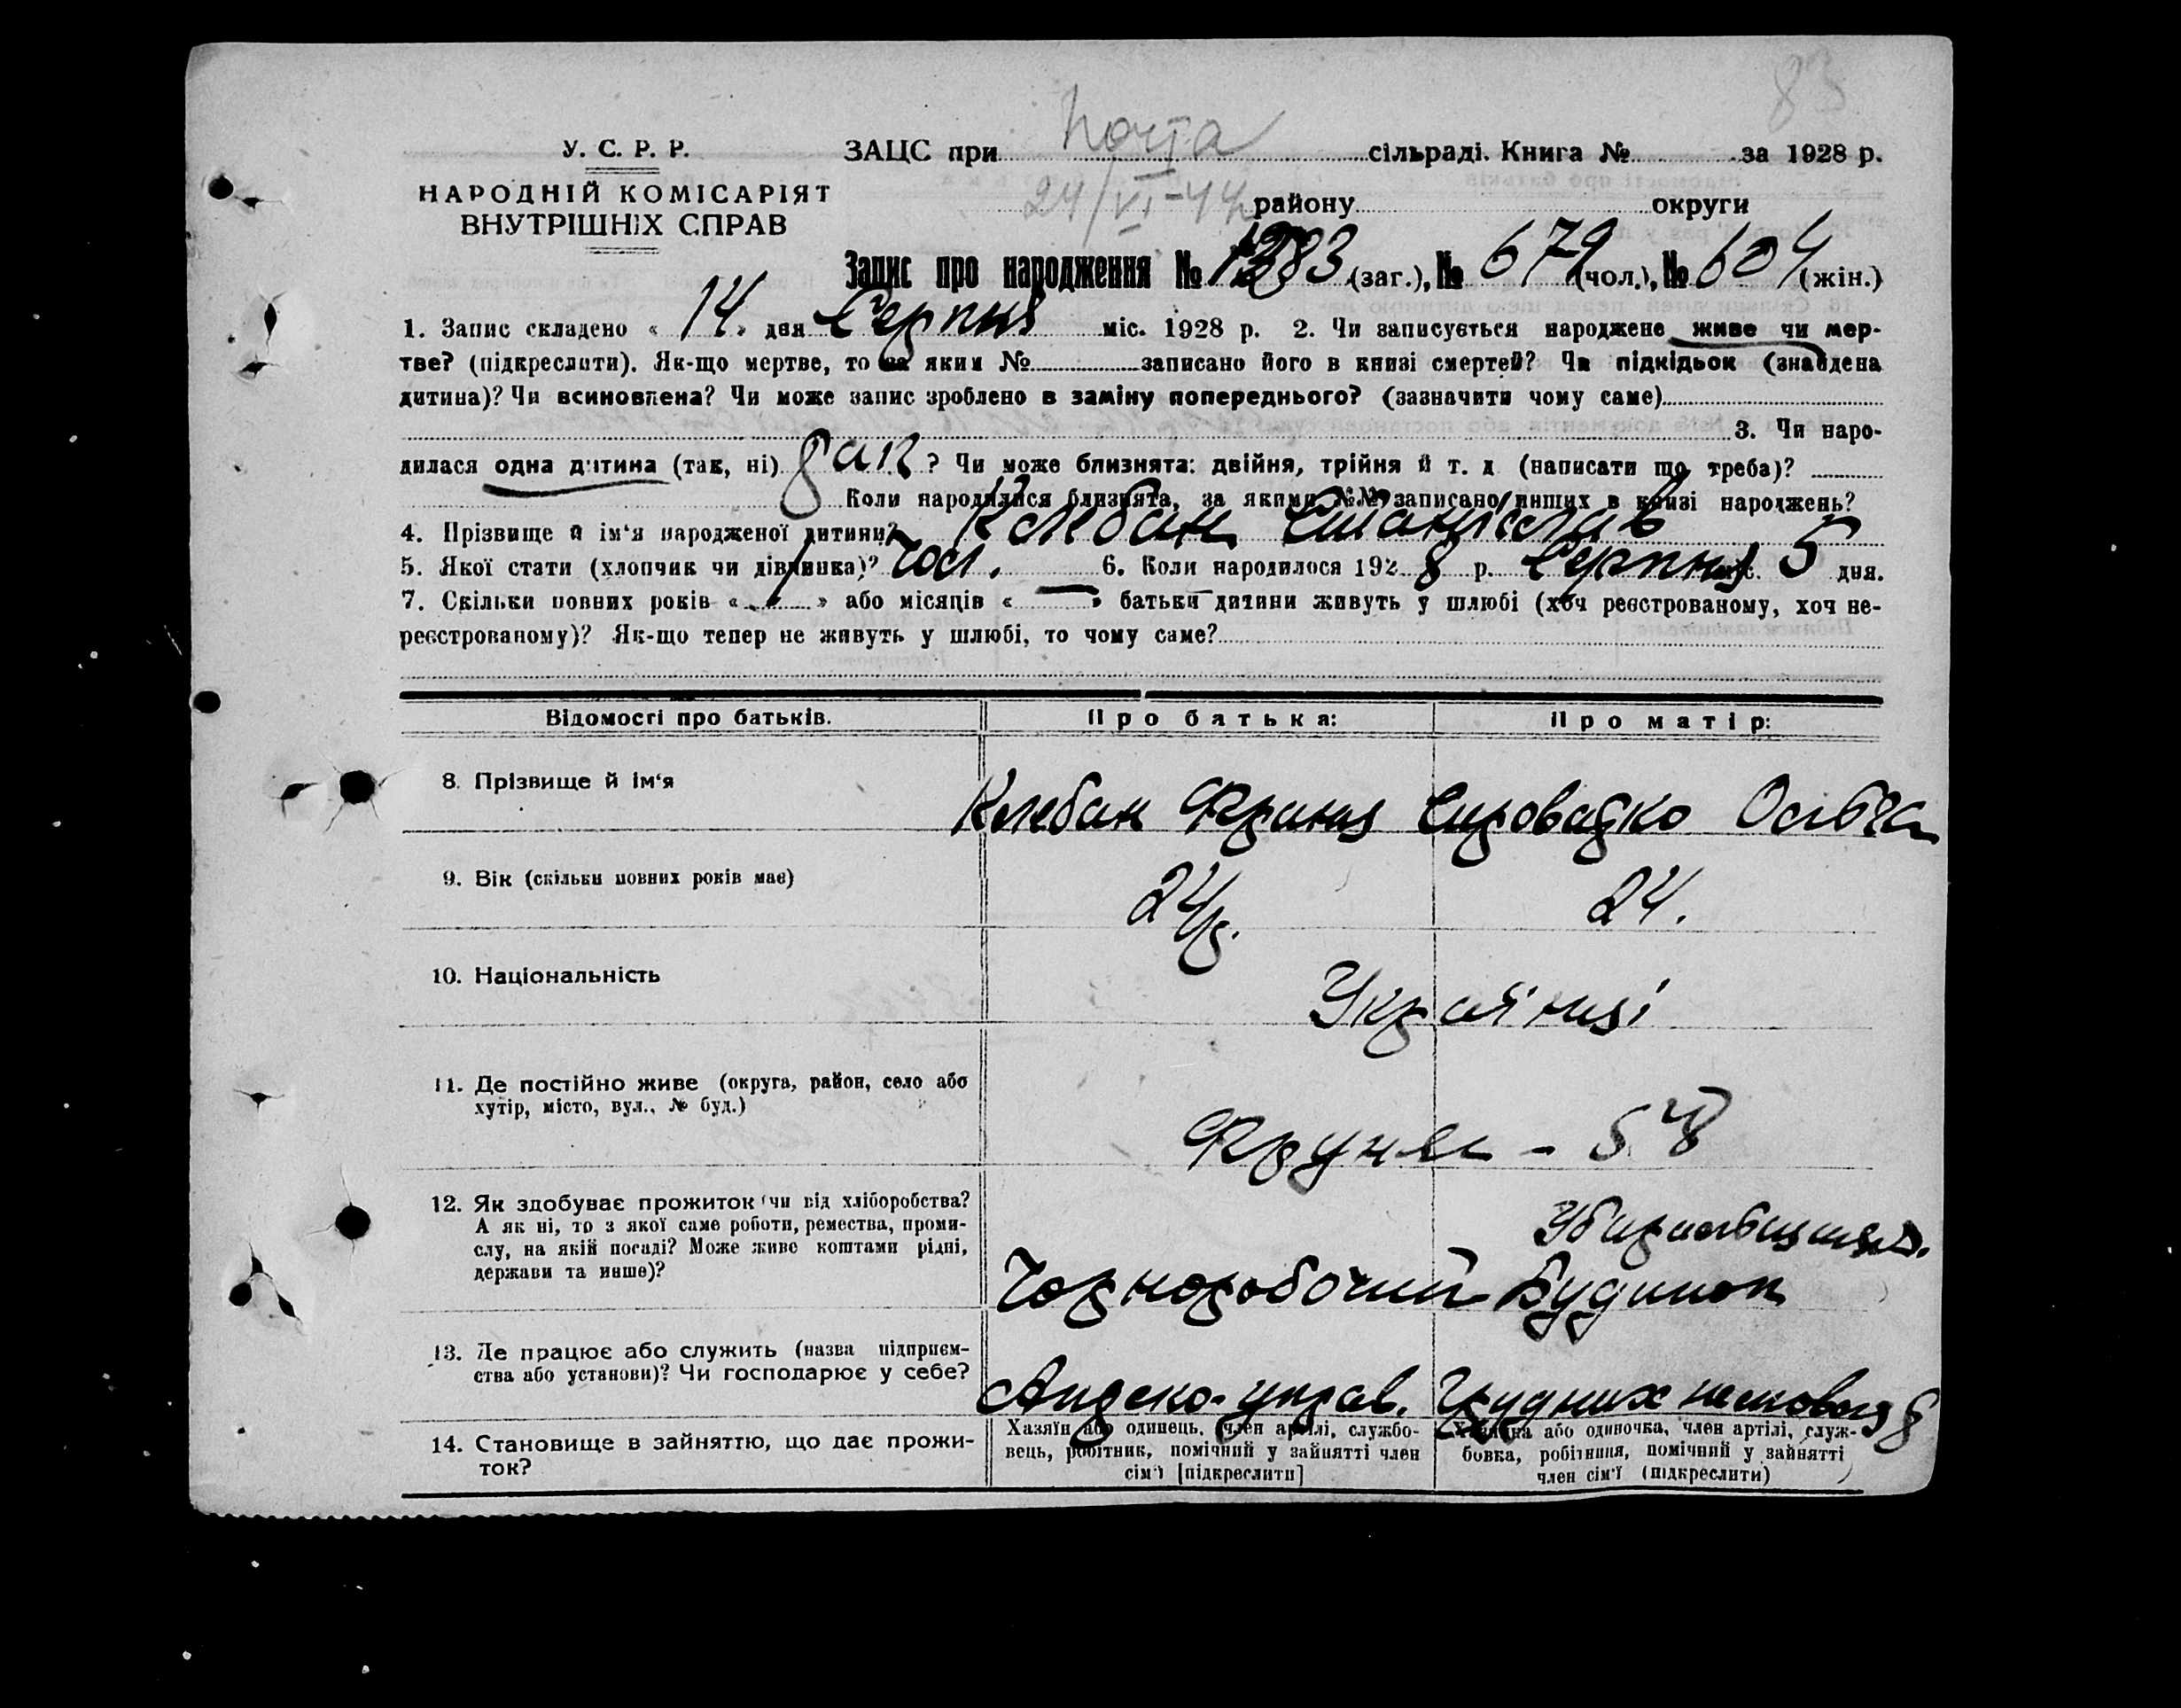 83
У. С. Р. Р.
НАРОДНІЙ КОМІСАРІЯТ
ВНУТРІШНІХ СПРАВ
ЗАЦС при почта сільраді. Книга № за 1928 р.
24/VI-44 району округи
Запис про народження № 1283 (заг.), № 679 (чол.), № 604 (жін.)
1. Запис складено « 14 » дня Серпня міс. 1928 р. 2. Чи записується народжене живе чи мер-
тве? (підкреслити). Як-що мертве, то за яким № записано його в книзі смертей? Чи підкідьок (знайдена
дитина)? Чи всиновлена? Чи може запис зроблено в заміну попереднього? (зазначити чому саме)
3. Чи наро-
дилася одна дитина (так, ні) так? Чи може близнята: двійня, трійня й т. д. (написати що треба)?
Коли народилися близнята, за якими №№ записано инших в книзі народжень?
4. Прізвище й ім'я народженої дитини? Клебан Станіслав
5. Якої стати (хлопчик чи дівчинка)? Чол. 6. Коли народилося 1928 р. Серпня міс. 5 дня.
7. Скільки повних років « » або місяців « — » батьки дитини живуть у шлюбі (хоч реєстрованому, хоч не-
реєстрованому)? Як-що тепер не живуть у шлюбі, то чому саме?
Відомості про батьків. Про батька: Про матір:
8. Прізвище й ім'я Клебан Франц Сировадко
9. Вік (скільки повних років має) 24 р. 24.
10. Національність Українці
11. Де постійно живе (округа, район, село або
хутір, місто, вул., № буд.) Фрунзе – 58
12. Як здобуває прожиток (чи від хліборобства?
А як ні, то з якої саме роботи, ремества, проми-
слу, на якій посаді? Може живе коштами рідні,
держави та инше)?
Чорноробочий Будинок
13. Де працює або служить (назва підприєм-
ства або установи)? Чи господарює у себе?
управ. Грудних
14. Становище в зайняттю, що дає прожи-
ток?
Хазяїн або одинець, член артілі, службо-
вець, робітник, помічний у зайнятті член
сім'ї [підкреслити]
Хазяйна або одиночка, член артілі, служ-
бовка, робітниця, помічний у зайнятті
член сім'ї (підкреслити)